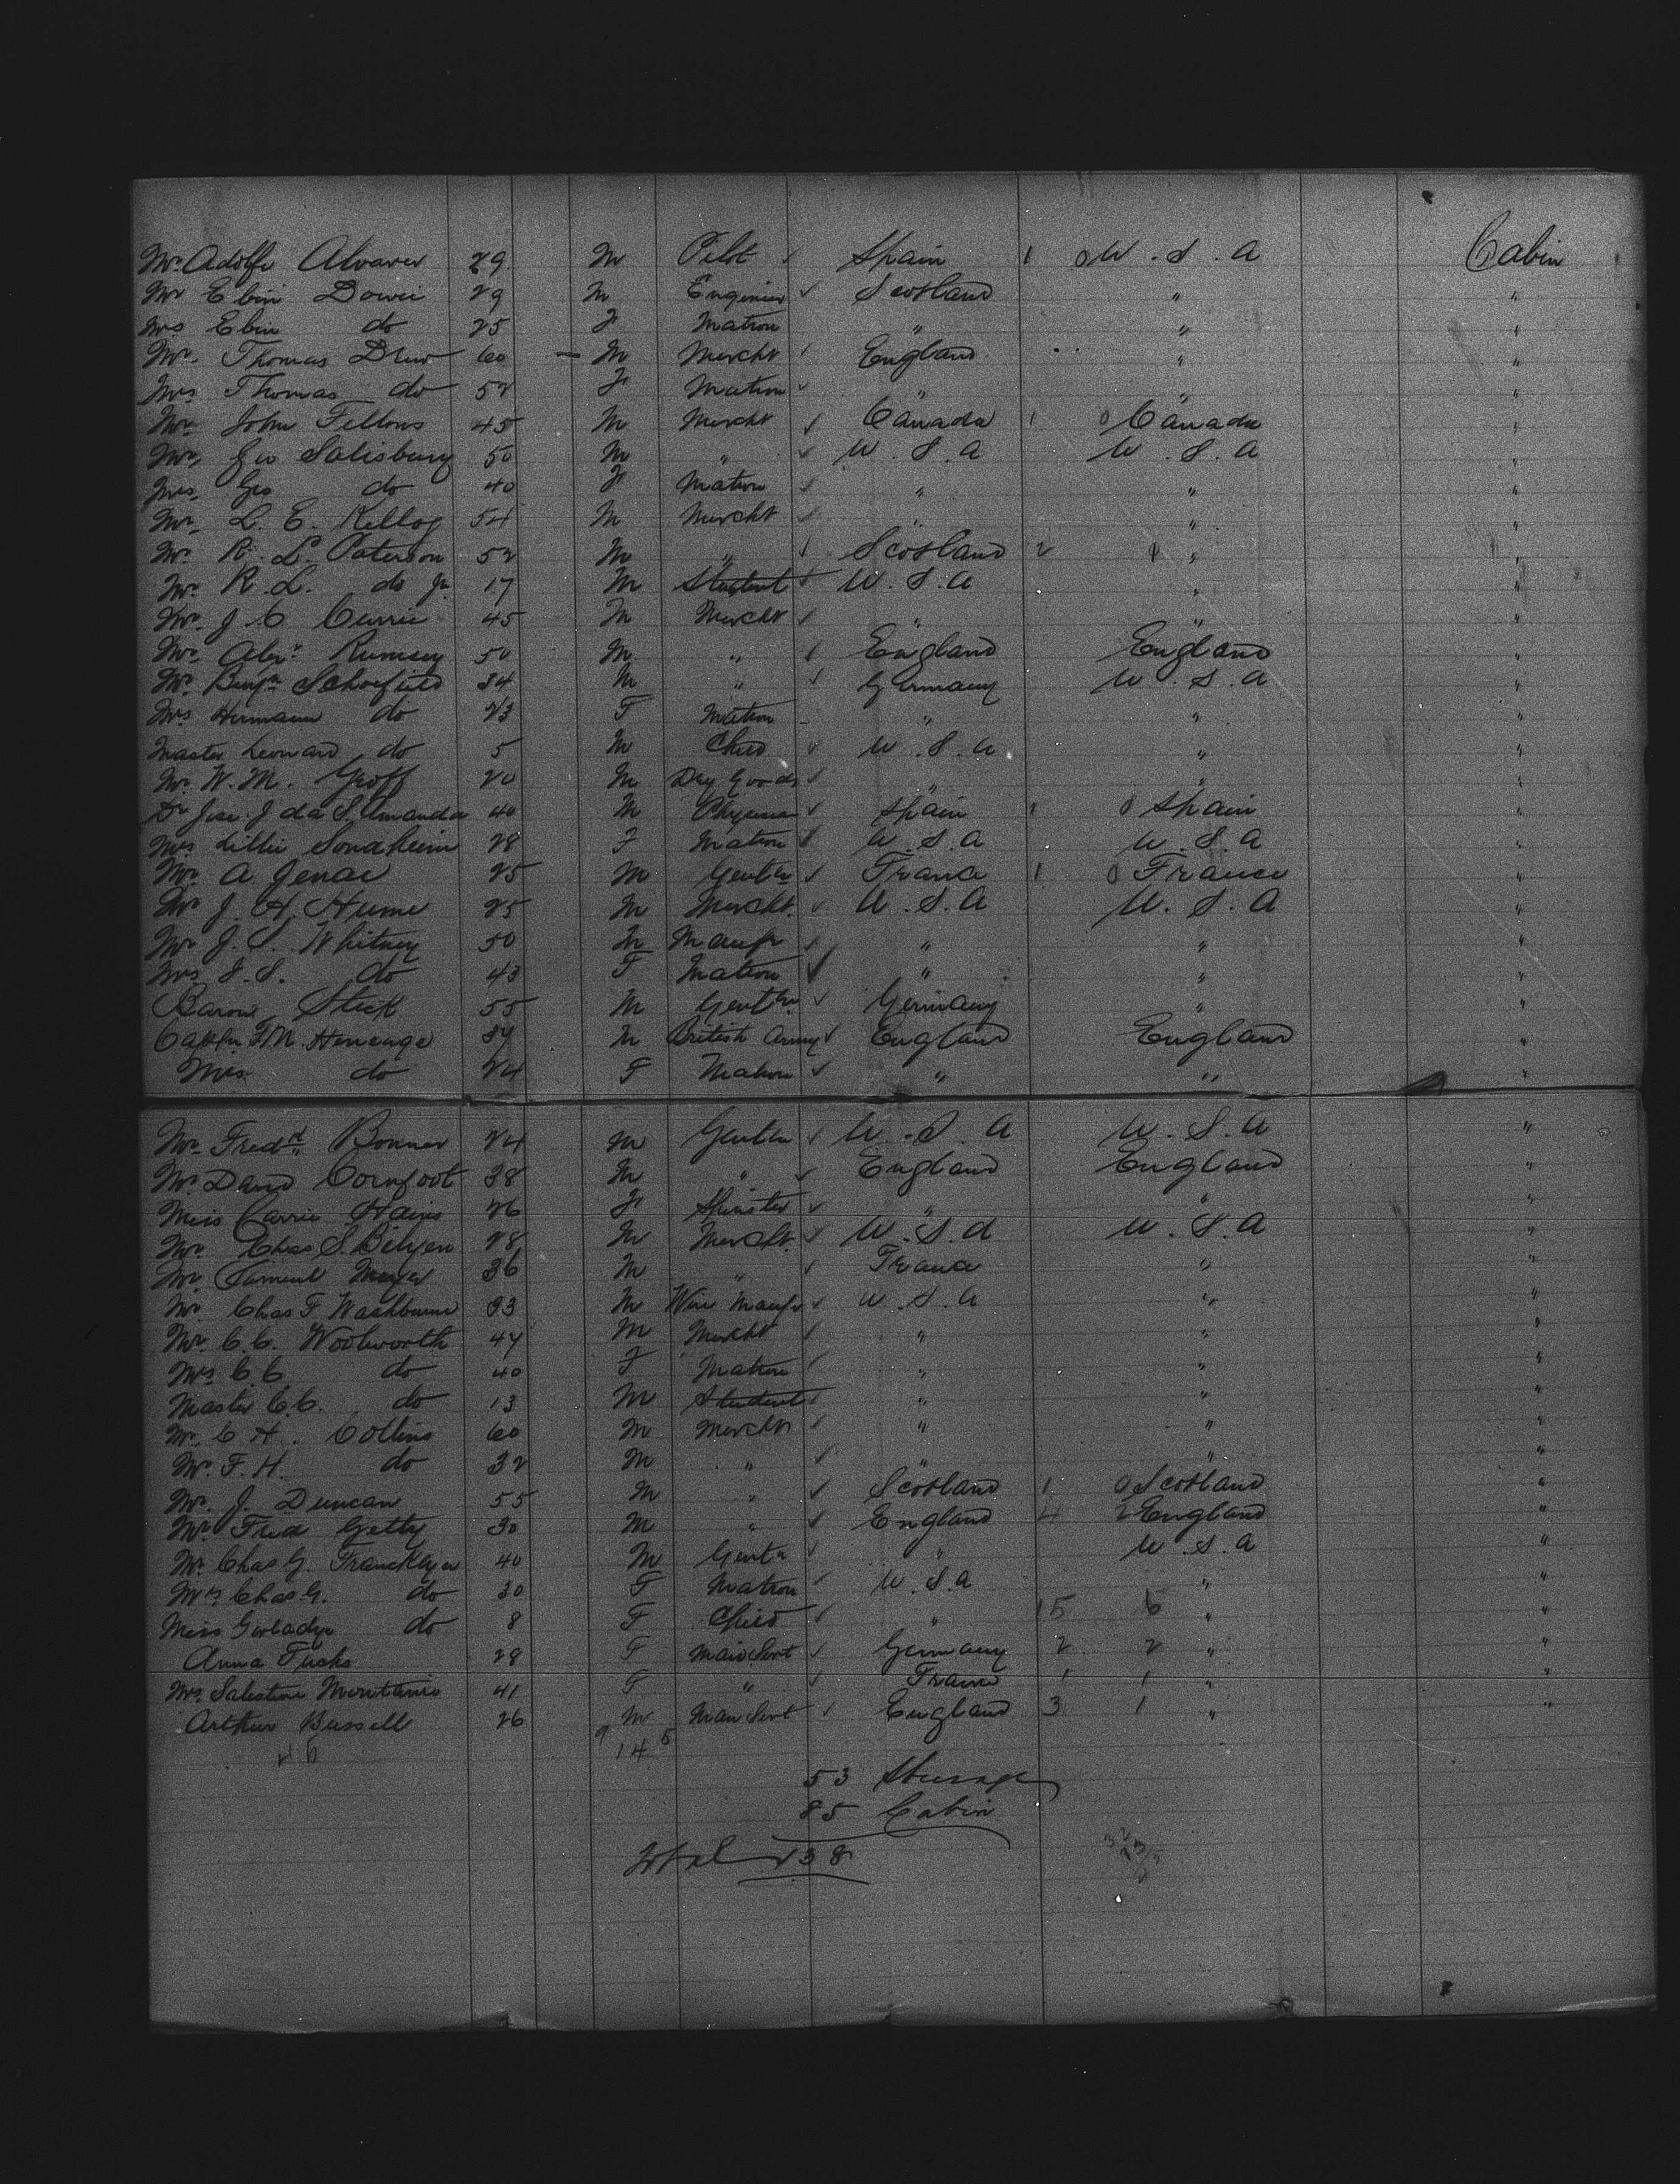 Mr. Adolfo Alvarez 29 M Pilot ✓ Spain 1 0 U.S.A Cabin
Mr Ebin Dowie 29 M Engineer ✓ Scotland " "
Mrs Ebin do 25 F Matron " " "
Mr. Thomas Drew 60 — M Mercht ✓ England " "
Mrs Thomas do 52 F Matron ✓ " " "
Mr. John Fellows 45 M Mercht ✓ Canada 1 0 Canada "
Mr. Geo Salisbury 50 M " ✓ U.S.A U.S.A "
Mrs. Geo do 40 F Matron ✓ " " "
Mr. L. E. Kellog 54 M Mercht ✓ " " "
Mr. R. L. Paterson 52 M " ✓ Scotland 2 1 " "
Mr. R. L. do Jr. 17 M Student ✓ U.S.A " "
Mr. J. C. Currie 45 M Mercht ✓ " " "
Mr. Alexr. Rumsey 50 M " ✓ England England "
Mr. Benjn Schofield 34 M " ✓ Germany U.S.A "
Mrs Hermann do 23 F Matron " " "
Master Leonard do 5 M Child ✓ U.S.A " "
Mr. W. M. Groff 20 M Dry Goods ✓ " " "
Dr Jose J da S. Amanda 40 M Physician ✓ Spain 1 0 Spain "
Mrs Lillie Sondheim 28 F Matron ✓ U.S.A U.S.A "
Mr. A. Jenae 25 M Gentln ✓ France 1 0 France "
Mr J. H. Hume 25 M Mercht. ✓ U.S.A U.S.A "
Mr J. S. Whitney 50 M Manfr ✓ " " "
Mrs J. S. do 43 F Matron ✓ " " "
Baron Steck 55 M Gentln. ✓ Germany " "
Captn F. M. Heneage 34 M British Army ✓ England England "
Mrs. do 24 F Matron ✓ " " "
Mr. Fredk Bonner 24 M Gentln ✓ U.S.A U.S.A "
Mr. David Cornfoot 38 M " ✓ England England "
Miss Carrie Hains 26 F Spinster ✓ " " "
Mr. Chas S. 28 M Mercht. ✓ U.S.A U.S.A "
Mr. Samuel Meyer 36 M " ✓ France " "
Mr. Chas F. Washburne 33 M Wire Manfr ✓ U.S.A " "
Mr. C. C. Woolworth 47 M Mercht ✓ " " "
Mrs C. C. do 40 F Matron ✓ " " "
Master C. C. do 13 M Student ✓ " " "
Mr. C. H. Collins 60 M Mercht ✓ " " "
Mr. F. H. do 32 M " ✓ " " "
Mr. J. Duncan 55 M " ✓ Scotland 1 0 Scotland "
Mr. Fred Getty 30 M " ✓ England 4 2 England "
Mr. Chas G. Francklyn 40 M Gentn ✓ " U.S.A "
Mrs Chas G. do 30 F Matron ✓ U.S.A " "
Miss do 8 F Child ✓ " 15 6 " "
Anna Fuchs 28 F Maid Sert ✓ Germany 2 2 " "
Mrs. Montanie 41 F " ✓ France 1 1 " "
Arthur Bussell 26 M Man Sert ✓ England 3 1 " "
9 14 5
53 Steerage
85 Cabin
Total 138